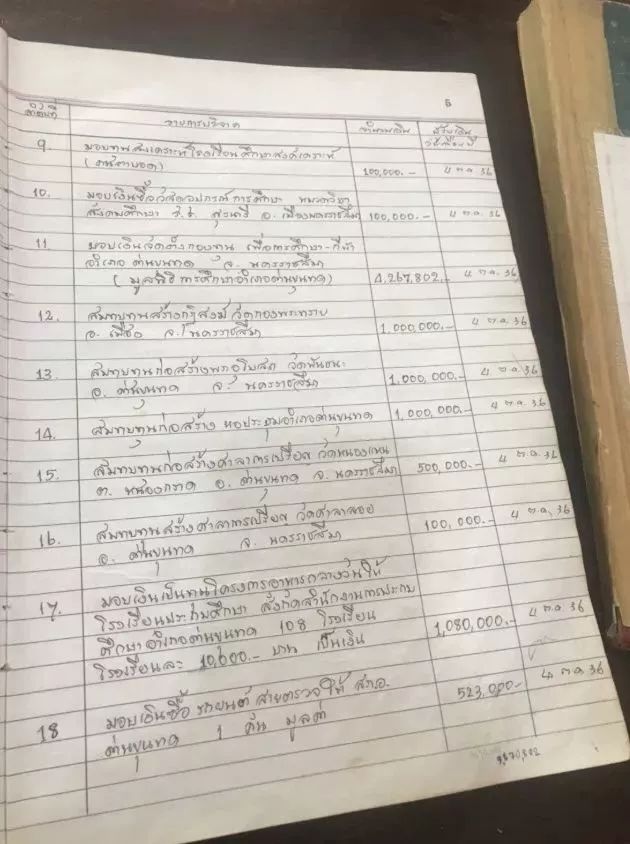 6
ลำดับที่ รายการบริจาค จำนวนเงิน
9. มอบทุนสงเคราะห์ โรงเรียนศึกษาสงเคราะห์
(คนตาบอด) 100,000.- 4 ต.ค. 36
10. มอบเงินซื้อวัสดุอุปกรณ์การศึกษา หมวดวิชา
สังคมศึกษา ร.ร. สุรนารี อ. เมืองนครราชสีมา 100,000.- 4 ต.ค. 36
11 มอบเงินจัดตั้งกองทุน เพื่อการศึกษา-กีฬา
อำเภอด่านขุนทด จ. นครราชสีมา
(มูลนิธิการศึกษาอำเภอด่านขุนทด) 4,267,802.- 4 ต.ค. 36
12. สมทบทุนสร้างกุฏิสงฆ์ วัดกองพระทราย
อ. จ. นครราชสีมา 1,000,000.- 4 ต.ค. 36
13. สมทบทุนก่อสร้าง วัดพันชนะ
อ. ด่านขุนทด จ. นครราชสีมา 1,000,000.- 4 ต.ค. 36
14. สมทบทุนก่อสร้าง หอประชุมอำเภอด่านขุนทด 1,000,000.- 4 ต.ค. 36
15. สมทบทุนก่อสร้างศาลาการเปรียญ
ต. หนองกราด อ. ด่านขุนทด จ. นครราชสีมา 500,000.- 4 ต.ค. 36
16. สมทบทุนสร้างศาลาการเปรียญ วัดศาลาลอย
อ. ด่านขุนทด จ. นครราชสีมา 100,000.- 4 ต.ค. 36
17. มอบเงินเป็นทุนโครงการอาหารกลางวันให้
โรงเรียนประถมศึกษา สังกัดสำนักงานการประถม
ศึกษาอำเภอด่านขุนทด 108 โรงเรียน
โรงเรียนละ 10,000.- บาท เป็นเงิน 1,080,000.- 4 ต.ค. 36
18 มอบเงินซื้อ รถยนต์ สายตรวจ ให้ สภอ.
ด่านขุนทด 1 คัน มูลค่า 523,000.- 4 ต.ค. 36